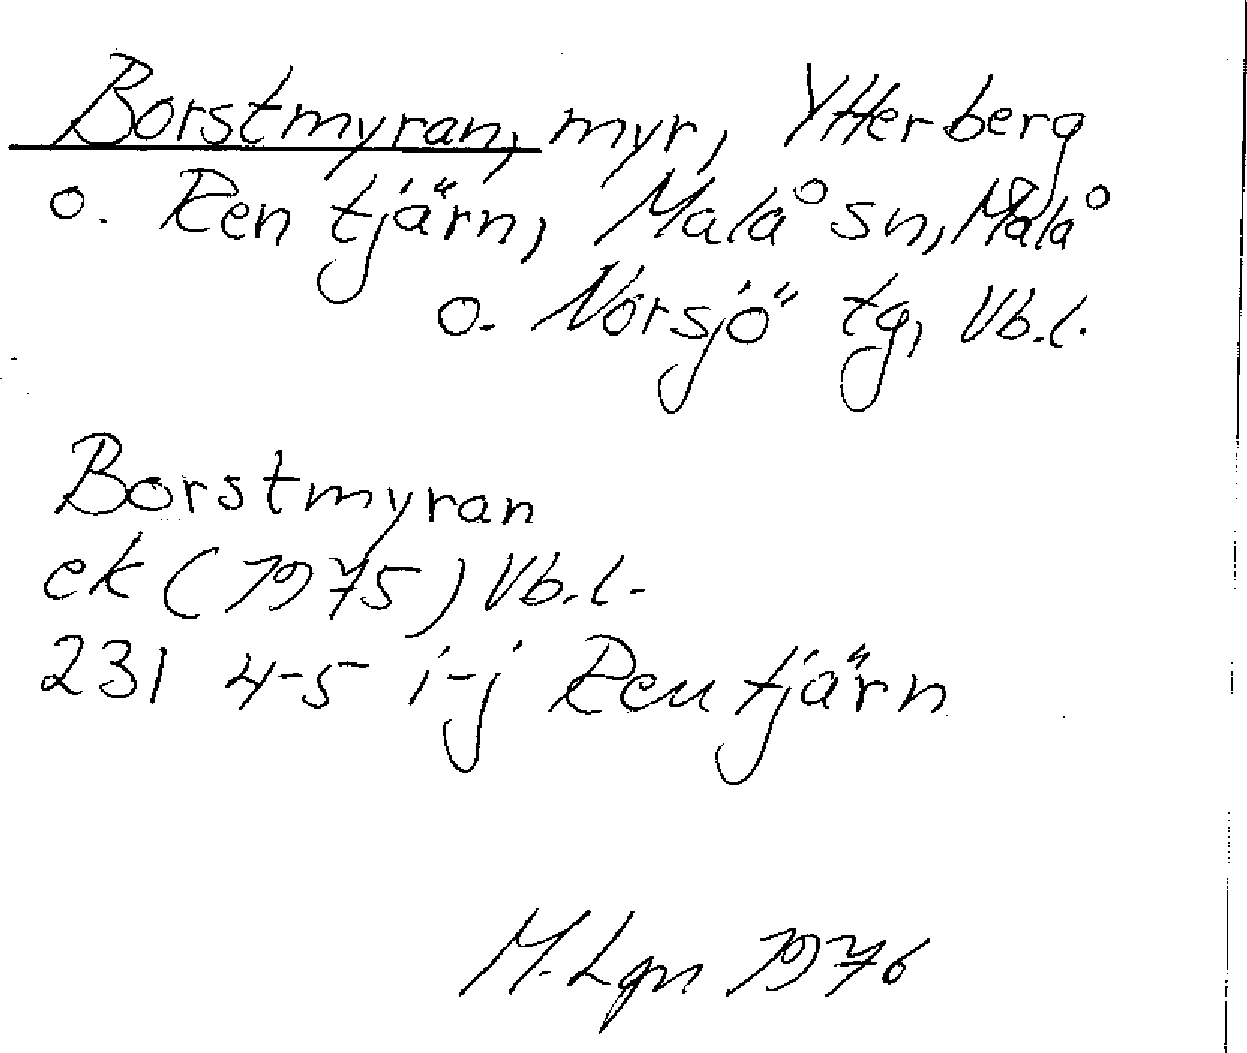 Borstmyran, myr, Ytterberg
o. Rentjärn, Malå sn, Malå
o. Norsjö tg, Vb.l.
Borstmyran
ek (1975) Vb.l.
231 4-5 i-j Rentjärn
M. Lgn 1976